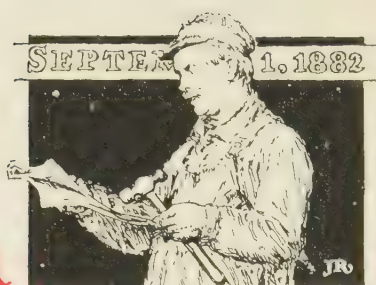 SEPTEM 1, 1882
JR